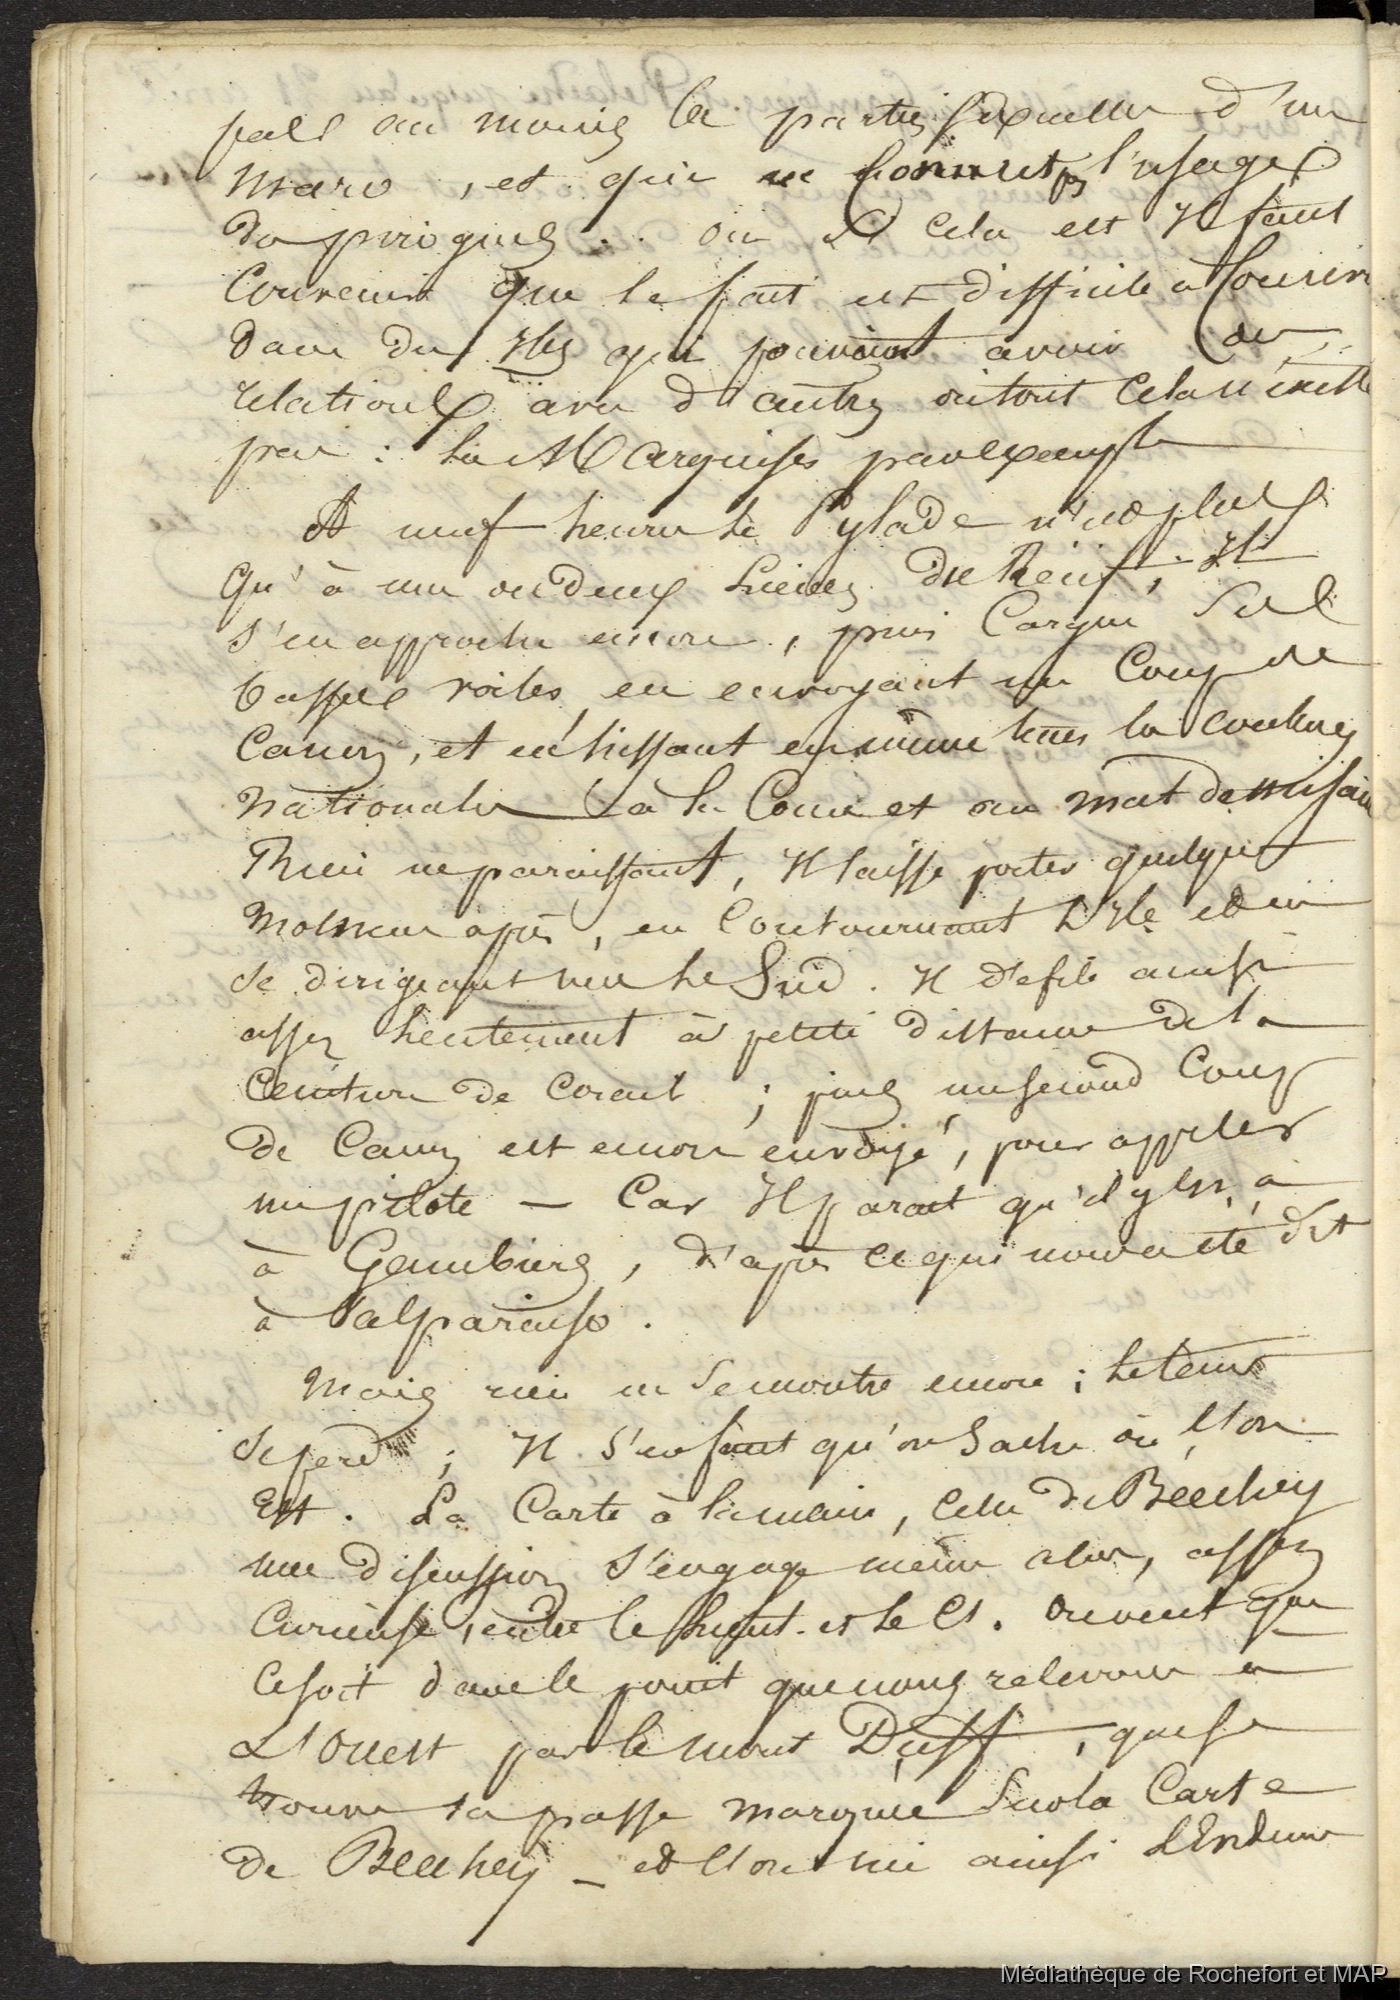 pas au moins les parties sexuelles d'un
maro, et qui ne connut pas l'usage
des pirogues .. ou si cela est Il faut
Convenir que le fait est difficile à Concevoir
dans des Iles qui pouvaient avoir des
relations avec d'autres où tout cela n'existe
pas : les Marquises par exemple
A neuf heures le Pylade n'est plus
qu'à une ou deux Lieues du Récif, Il
s'en approche encore, puis Cargue Ses
basses voiles, en envoyant un Coup de
Canon, et en hissant en même tems les couleurs
Nationales à la Corne et au mat de misaine
Rien ne paraissant, Il laisse porter quelques
Momens après, en Contournant L'Ile et en
se dirigeant vers le Sud. Il défile ainsi
assez lentement à petite distance de la
Ceinture de Corail ; puis un second Coup
de Canon est encore envoyé, pour appeler
un pilote — Car Il parait qu'il y en a
à Gambiers, d'après ce qui nous a été dit
à Valparaiso.
Mais rien ne Se montre encore ; le tems
se perd ; Il s'en faut qu'on Sache où l'on
Est. La Carte à la main, Celle de Beechey
une discussion s'engage même alors, assez
Curieuse, entre le Lieut. et le Ct. On veut que
Ce soit dans le point que nous relevons à
L'Ouest par le mont Duff, que se
trouve la passe marquée Sur la Carte
de Beechey — et l'on nie ainsi L'Endroit
Médiathèque de Rochefort et MAP